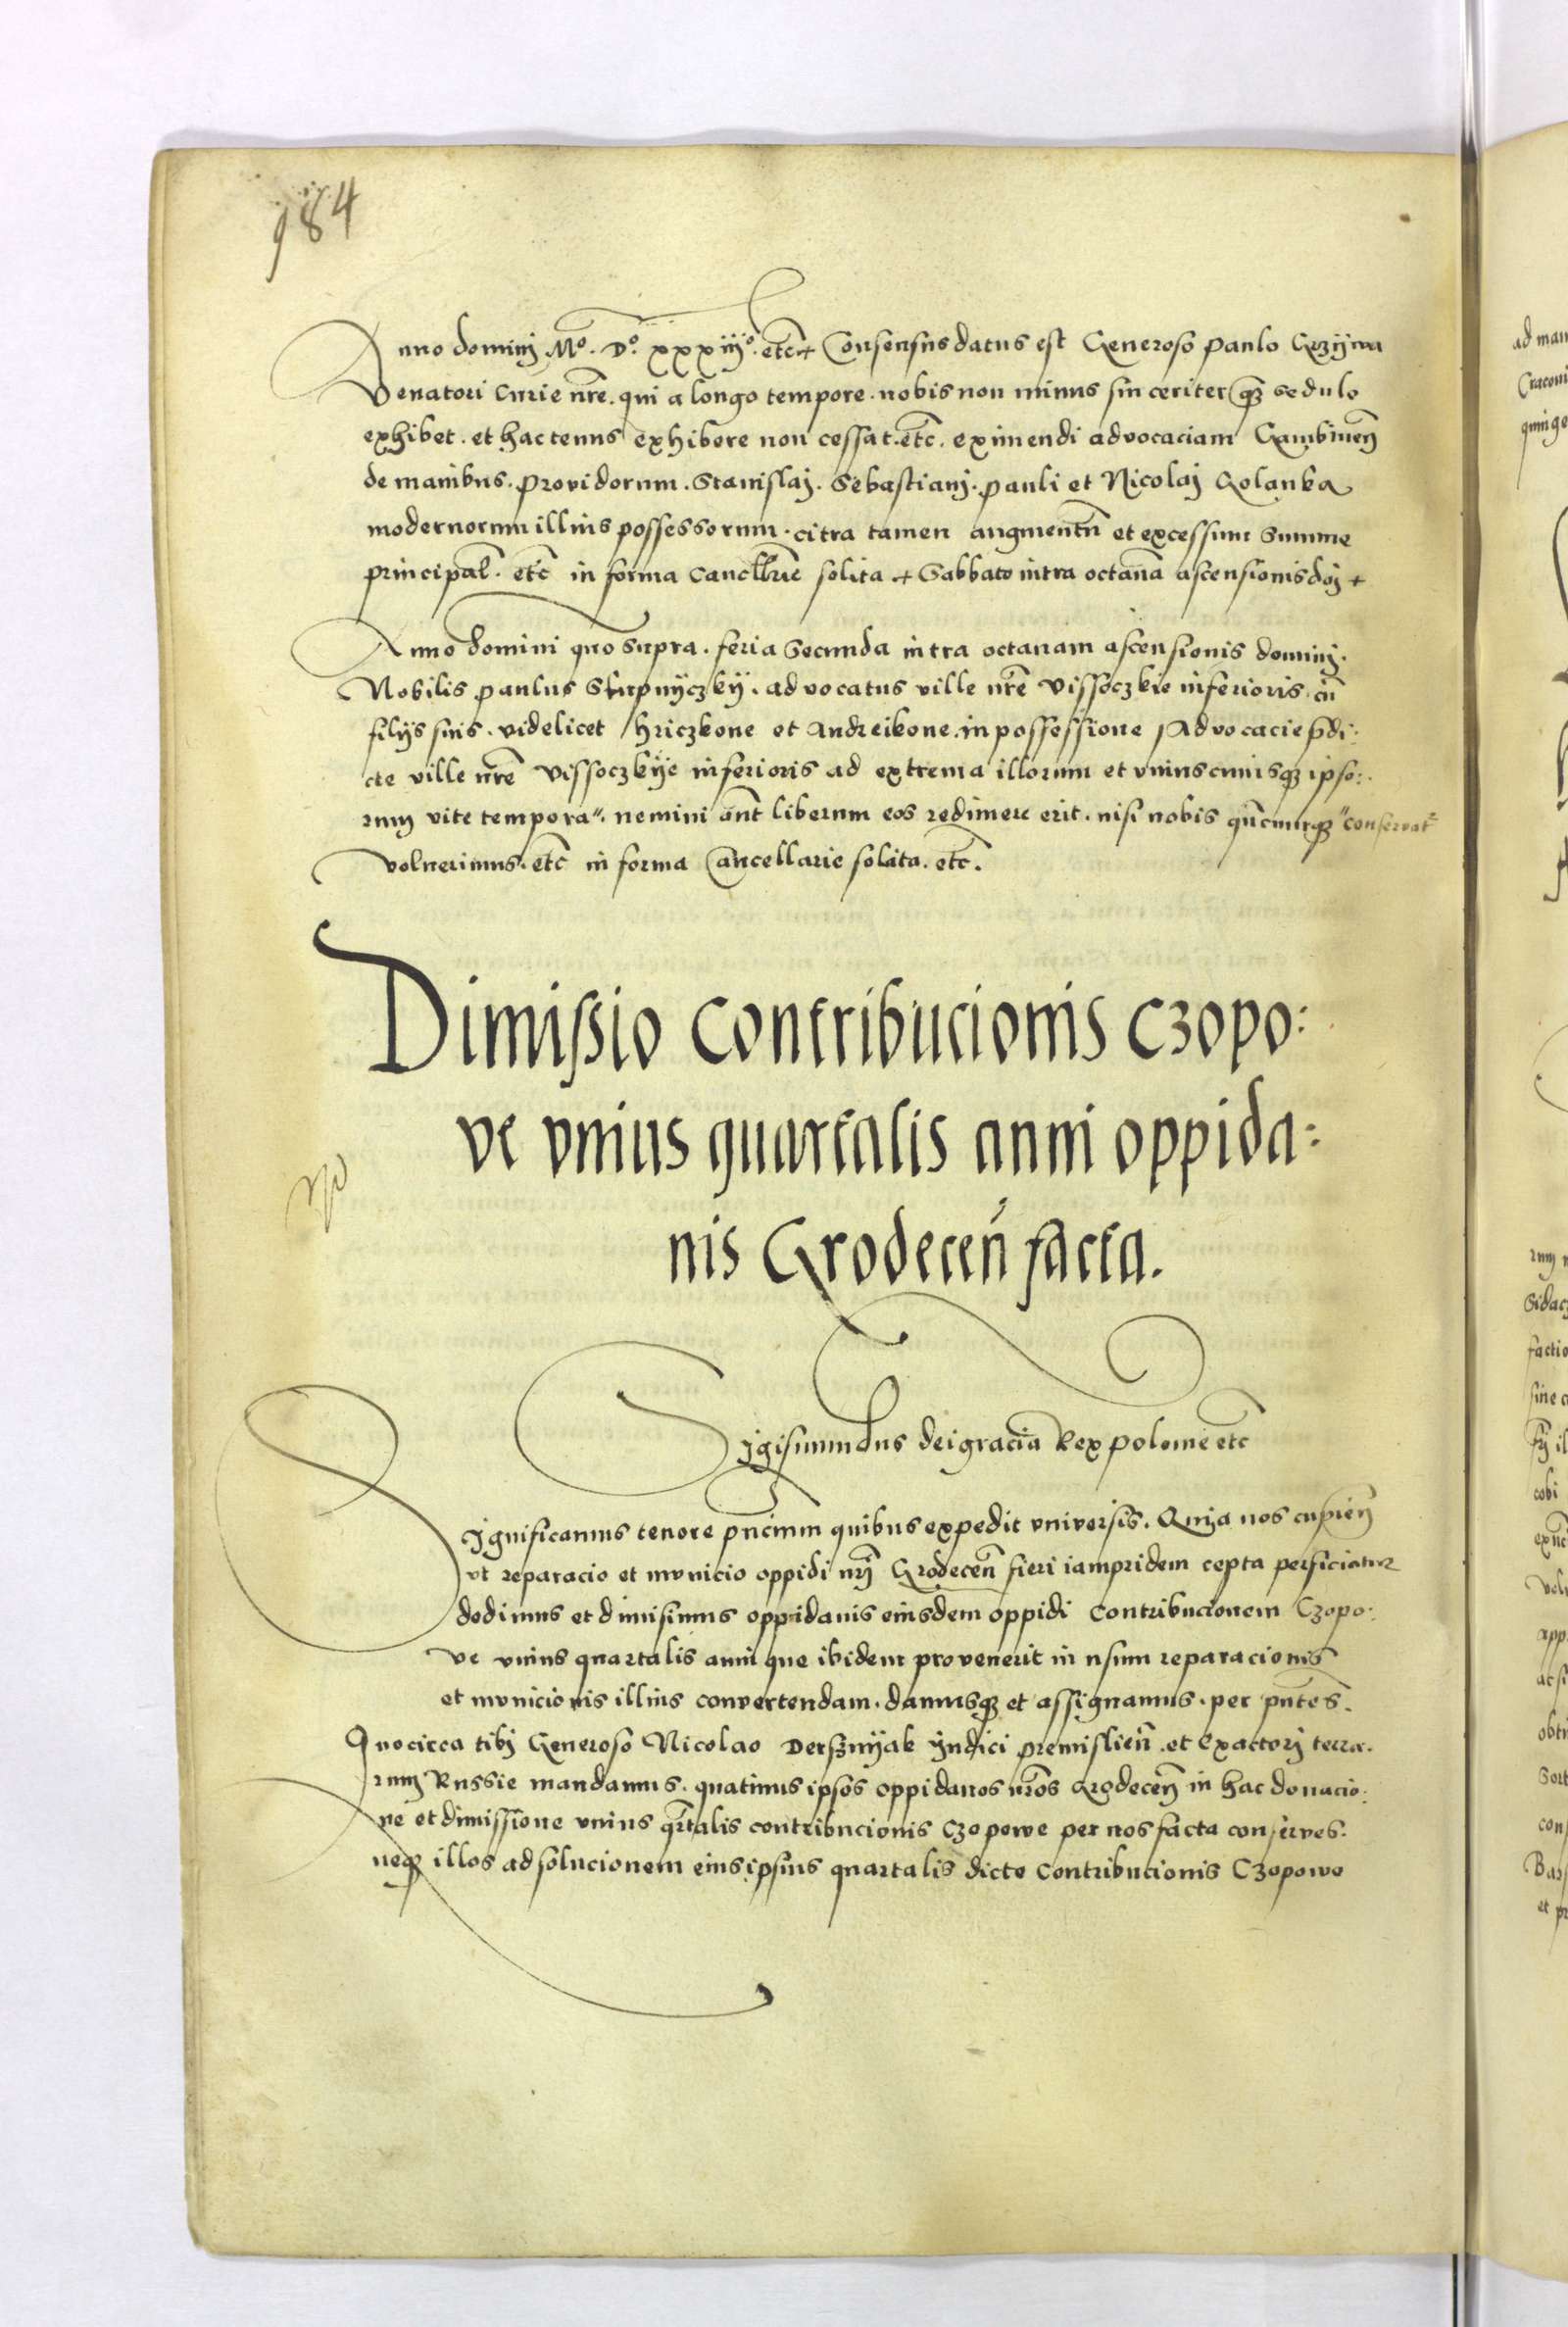 984
Anno dominij Mº. Dº. xxxiiijº. etc̄ + Consensus datus est Generoso Paulo Grzÿwa
Venatori Curie nr̄e. qui a longo tempore. nobis non minus sinceriter q̄ꝫ sedulo
exhibet. et hactenus exhibere non cessat. etc̄. eximendi advocaciam Gambinen̄
de manibus. Providorum. Stanislaj. Sebastianj. Pauli et Nicolaj Golanka
modernorum illius possessorum. citra tamen augmentū et excessum summe
principal̄. etc̄ in forma Cancell̄rie solita + Sabbato intra octauā ascensionis dn̄j +
Anno domini quo supra. feria Secunda intra octauam ascensionis dominj.
Nobilis Paulus Stupnÿczkÿ. advocatus ville nr̄e Vissoczkie inferioris. cū
filÿs suis. videlicet Hriczkone et Andreikone. in possessione Advocacie p̄di:
cte ville nr̄e Vissoczkÿe inferioris ad extrema illorum et vniuscuiusqꝫ ipso:
rum vite tempora". nemini aūt liberum eos redimere erit. nisi nobis qn̄cumqꝫ "conservat̄
voluerimus. etc̄ in forma Cancellarie solita. etc̄.
Dimissio contribucionis czopo:
ve vnius quartalis anni oppida:
nis Grodecen̄ facta.
Sigismundus dei gracia Rex polonie etc̄
Significamus tenore pn̄cium quibus expedit vniversis. Quia nos cupien̄
vt reparacio et municio oppidi nr̄j Grodecen̄ fieri iampridem cepta perficiatur
dedimus et dimisimus oppidanis eiusdem oppidi contribucionem Czopo:
ve vnius quartalis anni que ibidem provenerit in usum reparacionis
et municionis illius convertendam. damusqꝫ et assignamus. per pn̄tes.
Quocirca tibj Generoso Nicolao Dersznÿak Iudici premislien̄. et Exactorj terra:
rum Russie mandamus. quatinus ipsos oppidanos nr̄os Grodecen̄ in hac donacio:
ne et dimissione vnius qr̄talis contribucionis Czopowe per nos facta conserves.
neqꝫ illos ad solucionem eius ipsius quartalis dicte contribucionis Czopowe